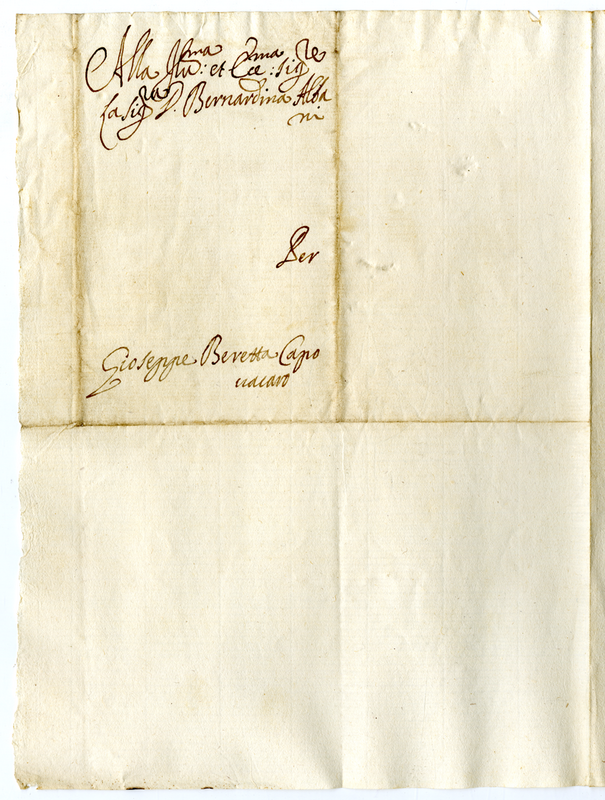 Alla Ill:ma et Ecc:ma Sig:re
La Sig:ra D. Bernardina Alba
ni
Per
Gioseppe Beretta Capo
vacaro